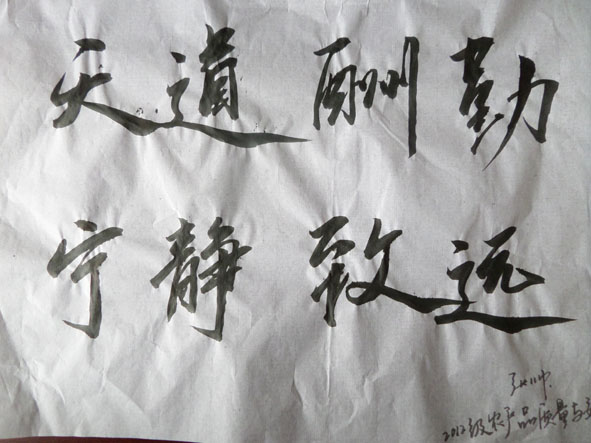 天道酬勤
宁静致远
张小中
2012级农产品质量与